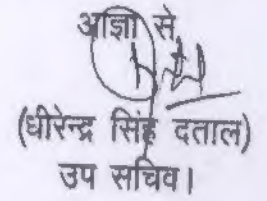 आज्ञा से
(धीरेन्द्र सिंह दताल)
उप सचिव।